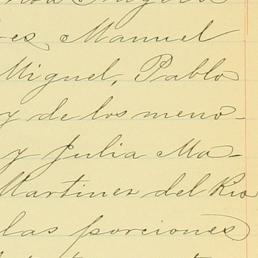 es, Manuel
Miguel, Pablo
y de los meno-
y Julia Ma-
Martinez del Rio
las porciones